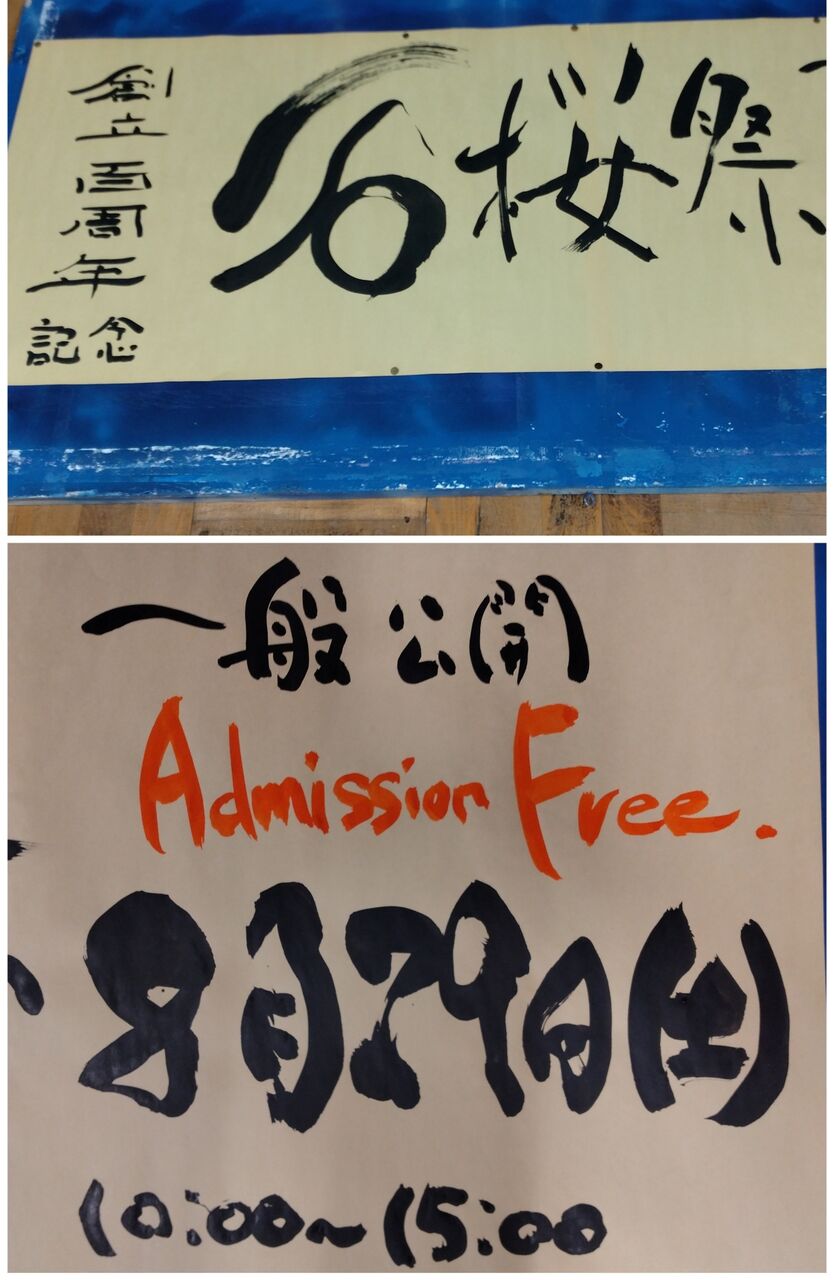 創立百周年
記念
名桜祭
一般公開
Admission Free.
8月29日(土)
10:00~15:00